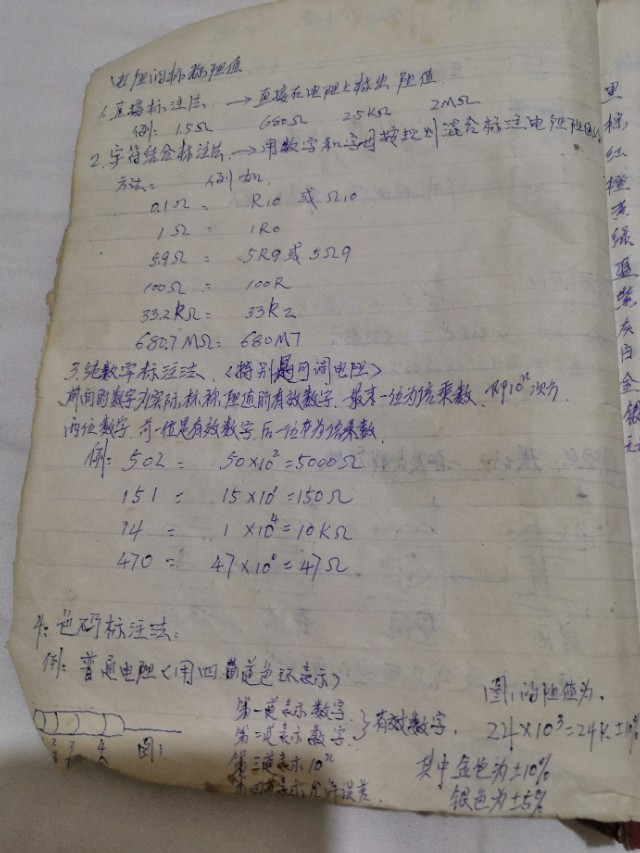 电阻的标称阻值
1.直接标注法 → 直接在电阻上标出阻值
例: 1.5Ω 680Ω 2.5KΩ 2MΩ
2.字符结合标注法 → 用数字和字母按规则混合标注电阻阻值
方法: 例如
0.1Ω = R10 或 Ω10
1Ω = 1R0
5.9Ω = 5R9或5Ω9
100Ω = 100R
33.2KΩ = 33K2
680.7MΩ= 680M7
3.纯数字标注法.(特别是可调电阻)
前面的数字为实际标称阻值的有效数字.最末一位为倍乘数.即10ⁿ次方
两位数字.前一位是有效数字,后一位为倍乘数.
例: 502 = 50×10²=5000Ω
151 = 15×10¹=150Ω
14 = 1×10⁴=10KΩ
470 = 47×10⁰=47Ω
4.色码标注法:
例: 普通电阻(用四道色环表示)
图1
第一道表示数字
第二道表示数字 } 有效数字.
第三道表示10ⁿ
第四道表示允许误差.
图1的阻值为.
24×10³=24K±10%
其中金色为±10%
银色为±5%
黑
棕
红
橙
黄
绿
蓝
紫
灰
白
金
银
无